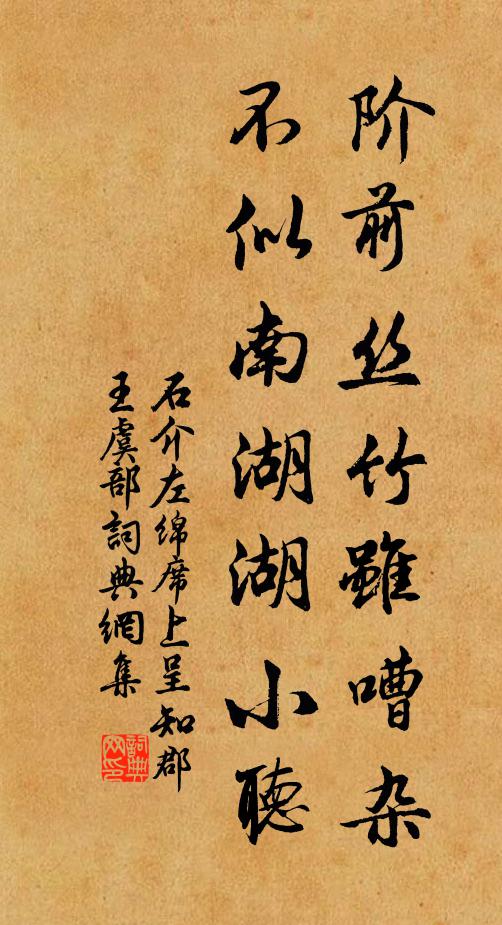 阶前丝竹雖嘈杂
不似南湖湖小聴
石介左绵席上呈知郡
王虞部詞典網集
詞典网印